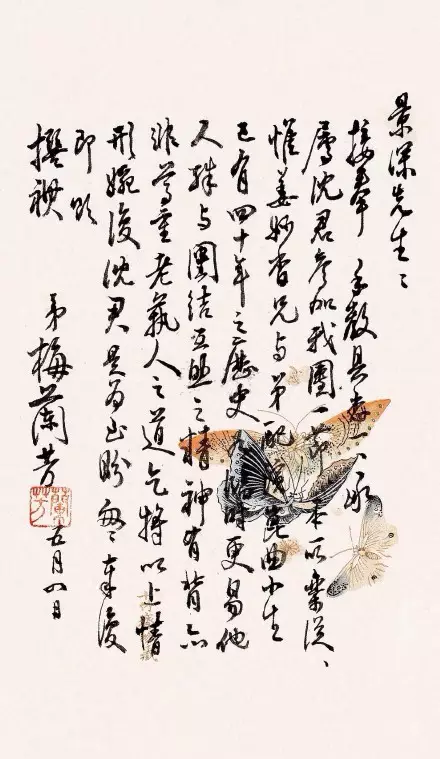 景深先生：
接奉手教具悉一一承
属沈君参加我團一節本所樂從、
惟姜妙香兄与弟配演崑曲小生
已有四十年之歷史 時更易他
人殊与團结互助之精神有背亦
非尊重老藝人之道乞将以上情
形婉復沈君是为至盼匆匆奉復
即頌
撰祺
弟梅蘭芳
五月四日